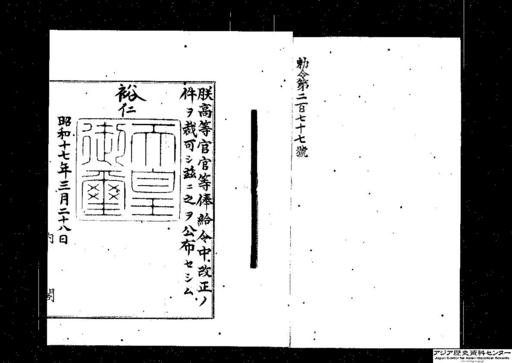 勅令第二百七十七號
朕高等官官等俸給令中改正ノ
件ヲ裁可シ茲ニ之ヲ公布セシム
裕仁
天皇
御璽
昭和十七年三月二十八日
内閣
アジア歴史資料センター
Japan Center for Asian Historical Records